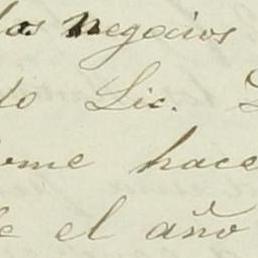 los negocios
do Lic.
ome hace
e el año